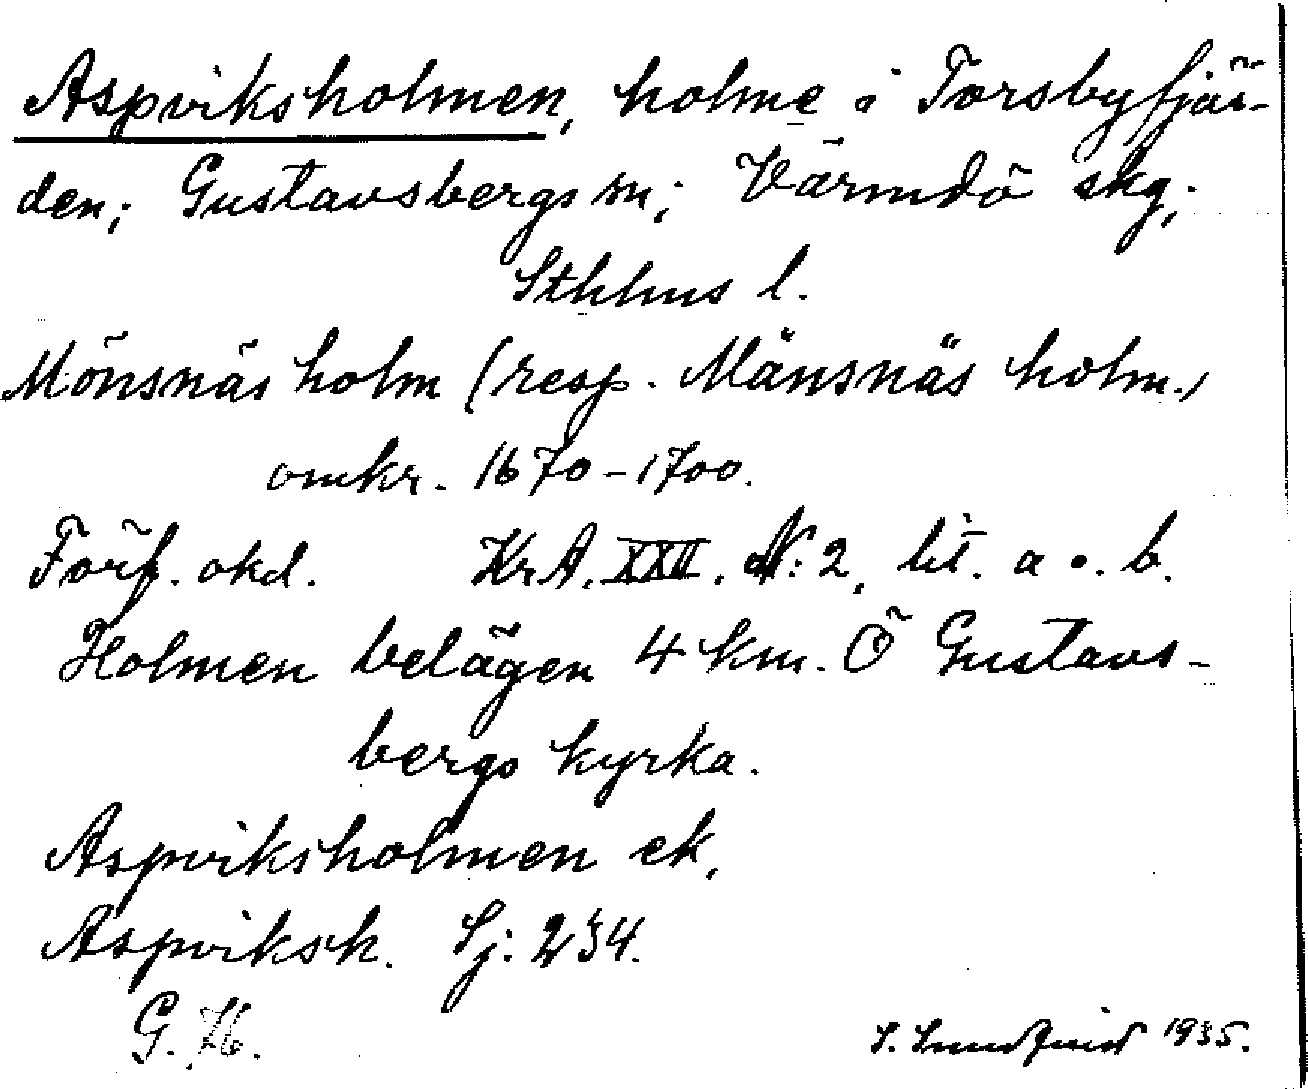 Aspviksholmen, holme i Torsbyfjär-
den; Gustavsbergs sn; Värmdö skg;
Sthlms l.
Mönsnäs holm (resp. Mänsnäs holm.,
omkr. 1670-1700.
Förf. okd. KrA. XXII. N:2, lit. a o. b.
Holmen belägen 4 km. Ö Gustavs-
bergs kyrka.
Aspviksholmen ek.
Aspviksh. Sj: 234.
G. H.
S. Lundqvist 1935.